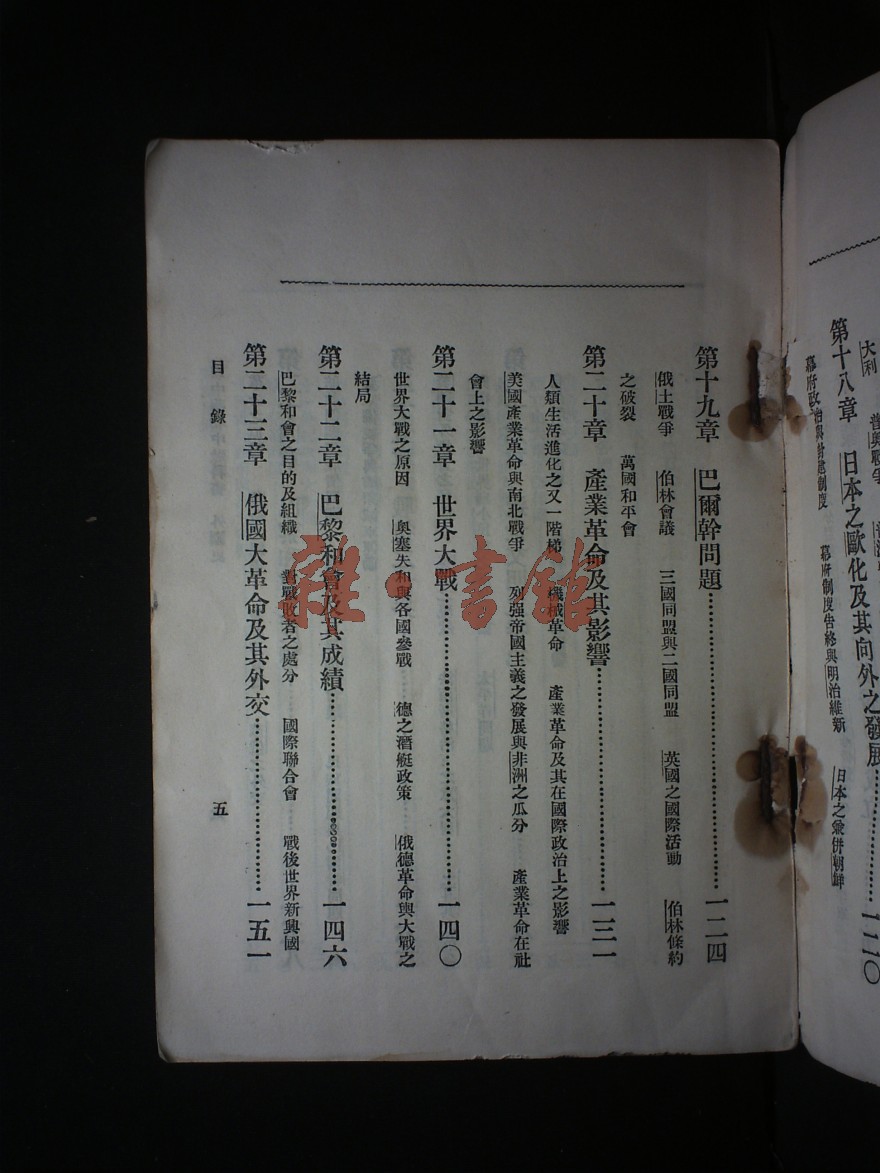 大利
普奧戰爭
第十八章　日本之歐化及其向外之發展…………一二〇
幕府政治與封建制度　幕府制度告終與明治維新　日本之兼併朝鮮
第十九章　巴爾幹問題…………一二四
俄土戰爭　伯林會議　三國同盟與二國同盟　英國之國際活動　伯林條約
之破裂　萬國和平會
第二十章　產業革命及其影響…………一三一
人類生活進化之又一階梯　機械革命　產業革命及其在國際政治上之影響
美國產業革命與南北戰爭　列强帝國主義之發展與非洲之瓜分　產業革命在社
會上之影響
第二十一章　世界大戰…………一四〇
世界大戰之原因　奧塞失和與各國參戰　德之潛艇政策　俄德革命與大戰之
結局
第二十二章　巴黎和會及其成績…………一四六
巴黎和會之目的及組織　對戰敗者之處分　國際聯合會　戰後世界新興國
第二十三章　俄國大革命及其外交…………一五一
目錄　五
雜·書館